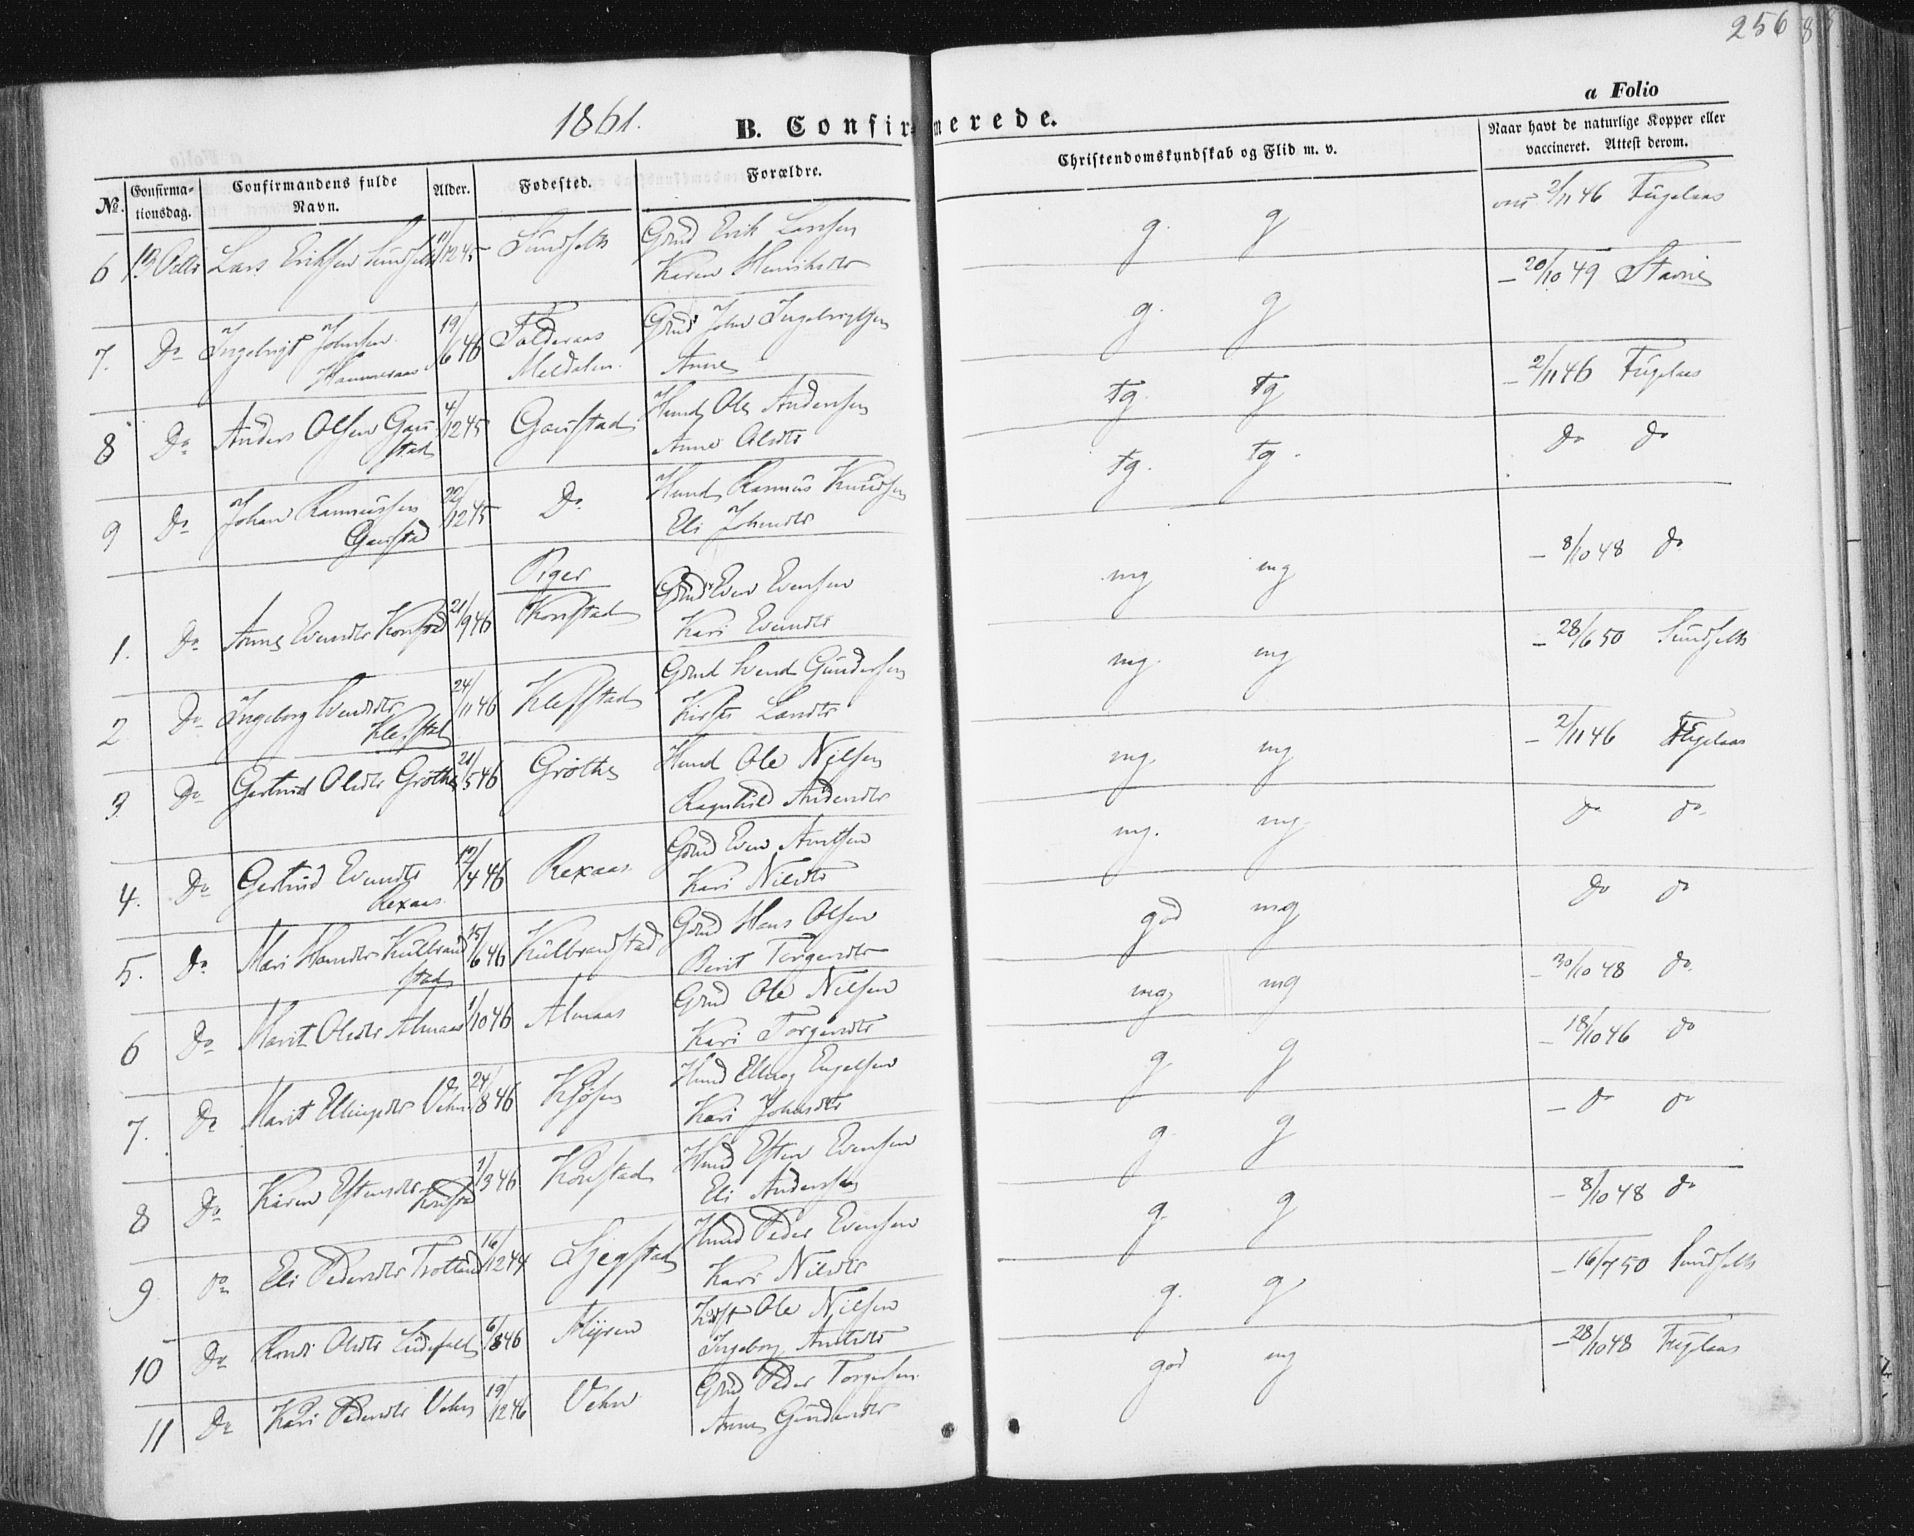 256
1861.
B. Confirmerede.
a Folio
No.
Confirmationsdag.
Confirmandens fulde Navn.
Alder.
Fødested.
Forældre.
Christendomskundskab og Flid m. v.
Naar havt de naturlige Kopper eller vaccineret. Attest derom.
6 13 Octbr Lars Eriksen Sundseth 11/12 45 Sundseth Grnd Erik Larssen g. g 2/11 46 Fuglaas
Karen Henriksdtr
7. Do Ingebrigt Johnsen 19/6 46 Foldaraas Grnd John Ingebrigtsen g. g – 20/10 49 Stavne
Hammeraas Meldalen. Anne
8 Do Anders Olsen Gau 4/12 45 Gaustad Huusmd Ole Anderssen Tg. Tg – 2/11 46 Fuglaas
stad Anne Olsdtr
9 Do Johan Rasmussen 22/12 45 Do Huusmd Rasmus Knudsen Tg. Tg. do do
Gaustad Eli Johnsdtr
Piger
1. Do Anne Evensdtr Konstad 21/9 46 Konstad Grnd Even Evensen mg mg – 8/10 48 do
Kari Evensdtr
2 Do Ingeborg Svendsdtr 24/11 46 Klefstad Grnd Svend Gundersen mg. mg – 28/6 50 Sundseth
Klefstad Kirsti Larsdtr
3 Do Gertrud Olsdtr Grøthe 21/5 46 Grøthe Hmd Ole Nilsen mg. mg – 2/11 46 Fuglaas
Ragnhild Andersdtr
4. Do Gertrud Evensdtr 12/4 46 Rexaas Grnd Even Arntsen mg. mg do do
Rexaas. Kari Nilsdtr
5. Do Mari Hansdtr Kulbrand 15/6 46 Kulbrandstad Grnd Hans Olsen god mg do do
stad Berit Torgersdtr
6 Do Marit Olsdtr Almaas 1/10 46 Almaas Grnd Ole Nilsen mg mg – 30/10 48 do
Kari Torgersdtr
7. Do Marit Ellingsdtr Vehn 24/8 46 Kjøsen Hmd Elling Engelsen g g – 18/10 46 do
Kari Johnsdtr
8 Do Karen Estensdtr 1/3 46 Konstad Hmd Esten Evensen g. g – do do
Konstad Eli Andersdtr
9 do Eli Pedersdtr 16/12 44 Hmd Peder Evensen g g – 8/10 48 do
Kari Nilsdtr
10 Do Olsdtr 6/8 46 Myren Ole Nilsen g. g – 16/7 50 Sundseth
Ingeborg Arntsdtr
11 Do Kari Pedersdtr Vehn 19/12 46 Vehn Grnd Peder Torgersen god mg – 28/10 48 Fuglaas
Anne Gundersdtr